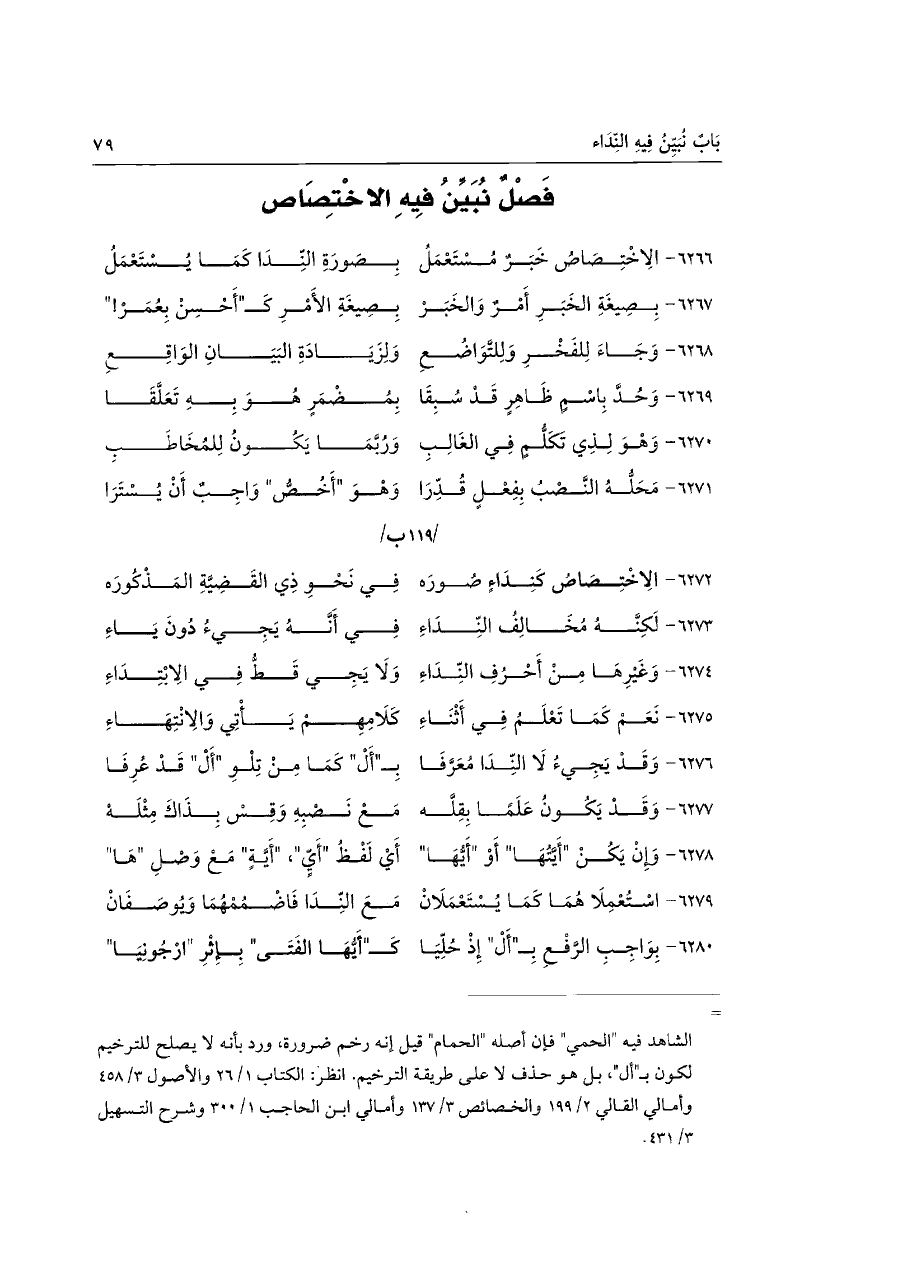 بَابُ نُبَيِّنُ فِيهِ النِّدَاء ٧٩
فَصْلٌ نُبَيِّنُ فِيهِ الاخْتِصَاص
٦٢٦٦- الِاخْتِصَاصُ خَبَرٌ مُسْتَعْمَلُ بِصَورَةِ النِّدَا كَمَا يُسْتَعْمَلُ
٦٢٦٧- بِصِيغَةِ الخَبَرِ أَمْرٌ وَالخَبَرْ بِصِيغَةِ الأَمْرِ كَـ"أَحْسِنْ بِعُمَرْ!"
٦٢٦٨- وَجَاءَ لِلفَخْرِ وَلِلتَّوَاضُعِ وَلِزَيَادَةِ البَيَانِ الوَاقِعِ
٦٢٦٩- وَحُدَّ بِاسْمٍ ظَاهِرٍ قَدْ سُبِقَا بِمُضْمَرٍ هُوَ بِهِ تَعَلَّقَا
٦٢٧٠- وَهْوَ لِذِي تَكَلُّمٍ فِي الغَالِبِ وَرُبَّمَا يَكُونُ لِلمُخَاطَبِ
٦٢٧١- مَحَلُّهُ النَّصْبُ بِفِعْلٍ قُدِّرَا وَهْوَ "أَخُصُّ" وَاجِبٌ أَنْ يُسْتَرَا
/١١٩ب/
٦٢٧٢- الِاخْتِصَاصُ كَنِدَاءٍ صُورَه فِي نَحْوِ ذِي القَضِيَّةِ المَذْكُورَه
٦٢٧٣- لَكِنَّهُ مُخَالِفُ النِّدَاءِ فِي أَنَّهُ يَجِيءُ دُونَ يَاءِ
٦٢٧٤- وَغَيْرِهَا مِنْ أَحْرُفِ النِّدَاءِ وَلَا يَجِي قَطُّ فِي الِابْتِدَاءِ
٦٢٧٥- نَعَمْ كَمَا تَعْلَمُ فِي أَثْنَاءِ كَلَامِهِمْ يَأْتِي وَالِانْتِهَاءِ
٦٢٧٦- وَقَدْ يَجِيءُ لَا النِّدَا مُعَرَّفَا بِـ"أَلْ" كَمَا مِنْ تِلْوِ "أَلْ" قَدْ عُرِفَا
٦٢٧٧- وَقَدْ يَكُونُ عَلَمًا بِقِلَّه مَعْ نَصْبِهِ وَقِسْ بِذَاكَ مِثْلَهْ
٦٢٧٨- وَإِنْ يَكُنْ "أَيَّتُهَا" أَوْ "أَيُّهَا" أَيْ لَفْظُ "أَيٍّ"، "أَيَّةٍ" مَعْ وَصْلِ "هَا"
٦٢٧٩- اسْتُعْمِلَا هُمَا كَمَا يُسْتَعْمَلَانْ مَعَ النِّدَا فَاضْمُمْهُمَا وَيُوصَفَانْ
٦٢٨٠- بِوَاجِبِ الرَّفْعِ بِـ"أَلْ" إِذْ حُلِّيَا كَـ"أَيُّهَا الفَتَى" بِإِثْرِ "ارْجُونِيَا"
=
الشاهد فيه "الحمي" فإن أصله "الحمام" قيل إنه رخم ضرورة، ورد بأنه لا يصلح للترخيم
لكون بـ"أل"، بل هو حذف لا على طريقة الترخيم. انظر: الكتاب ١/ ٢٦ والأصول ٣/ ٤٥٨
وأمالي القالي ٢/ ١٩٩ والخصائص ٣/ ١٣٧ وأمالي ابن الحاجب ١/ ٣٠٠ وشرح التسهيل
٣/ ٤٣١.